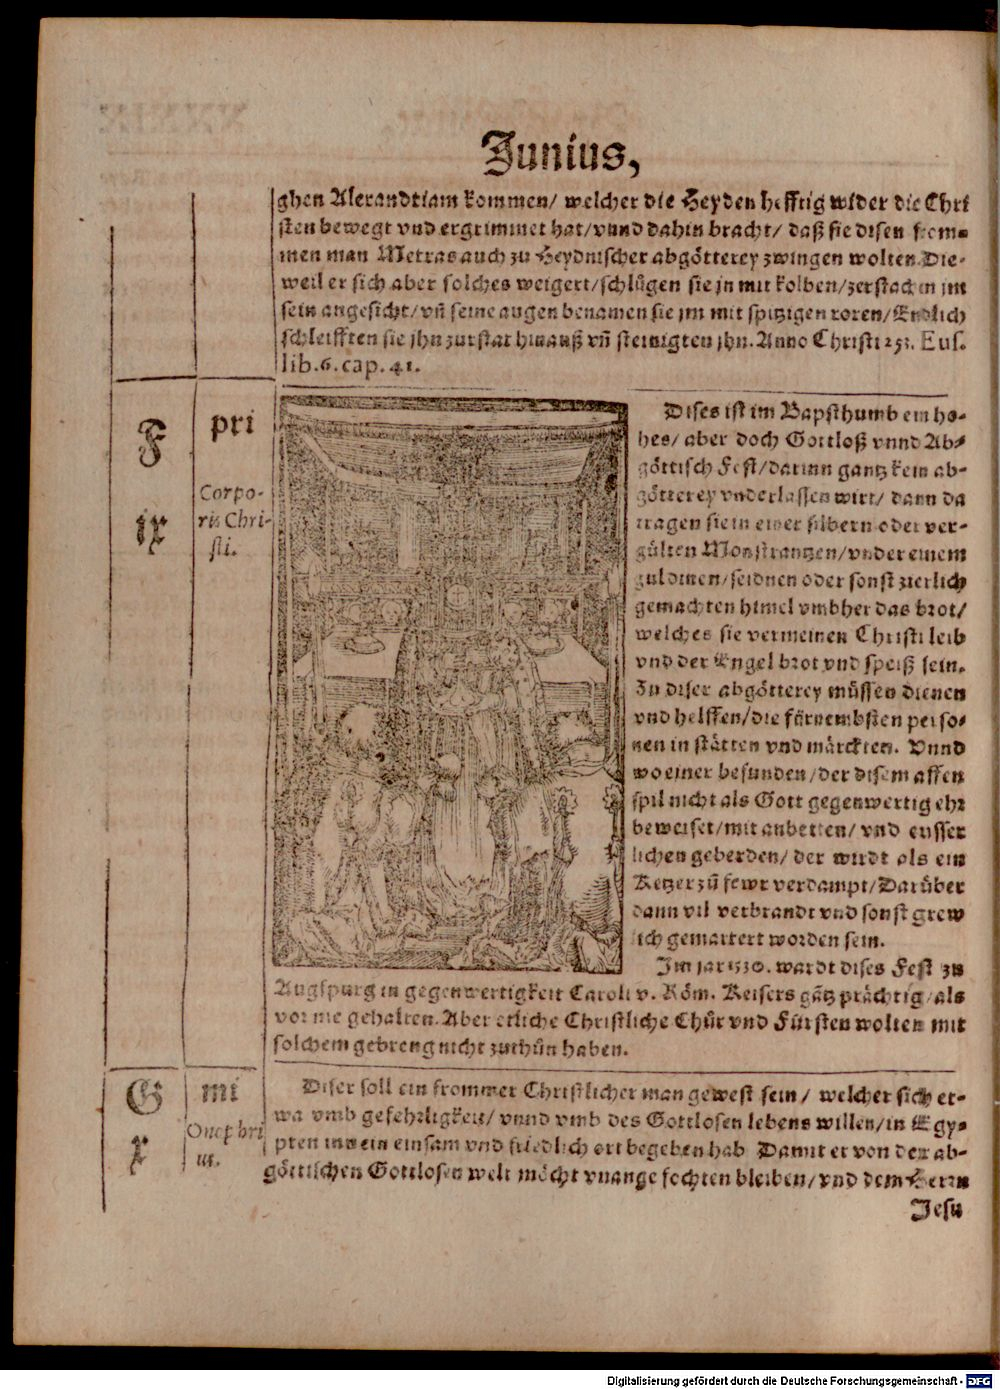 Junius,
ghen Alexandriam kommen/ welcher die Heyden hefftig wider die Chri
sten bewegt vnd ergrimmet hat/vnnd dahin bracht/ daß sie disen from-
men man Metras auch zu Heydnischer abgötterey zwingen wolten. Die-
weil er sich aber solches weigert/schlůgen sie jn mit kolben/zerstachen im
sein angesicht/vñ seine augen benamen sie jm mit spitzigen roren/Endlich
schleifften sie jhn zur stat hinauß vñ steinigten jhn. Anno Christi 253. Eus.
lib. 6. cap. 41.
F
ix
pri
Corpo-
ris Chri-
sti.
Dises ist im Bapsthumb ein ho-
hes/ aber doch Gottloß vnnd Ab-
göttisch Fest/darinn gantz kein ab-
götterey vnderlassen wirt/ dann da
tragen sie in einer silbern oder ver-
gülten Monstrantzen/vnder einem
guldinen/seidnen oder sonst zierlich
gemachten himel vmbher das brot/
welches sie vermeinen Christi leib
vnd der Engel brot vnd speiß sein.
Zu diser abgötterey müssen dienen
vnd helffen/die fürnembsten perso-
nen in stätten vnd märckten. Vnnd
wo einer befunden/der disem affen
spil nicht als Gott gegenwertig ehr
beweiset/mit anbetten/ vnd eusser
lichen geberden/ der wirdt als ein
Ketzer zů fewr verdampt/Darüber
dann vil verbrandt vnd sonst grew
lich gemartert worden sein.
Im jar 1530. wardt dises Fest zu
Augspurg in gegenwertigkeit Caroli v. Röm. Keisers gãtz prächtig/als
vor nie gehalten. Aber etliche Christliche Chůr vnd Fürsten wolten mit
solchem gebreng nicht zuthůn haben.
G
x
mi
Onophri
us.
Diser soll ein frommer Christlicher man gewest sein/ welcher sich et-
wa vmb gefehrligkeit/ vnnd vmb des Gottlosen lebens willen/in Egy-
pten inn ein einsam vnd friedlich ort begeben hab Damit er von der ab-
göttischen Gottlosen welt möcht vnange fochten bleiben/vnd dem Herrn
Jesu
Digitalisierung gefördert durch die Deutsche Forschungsgemeinschaft - DFG